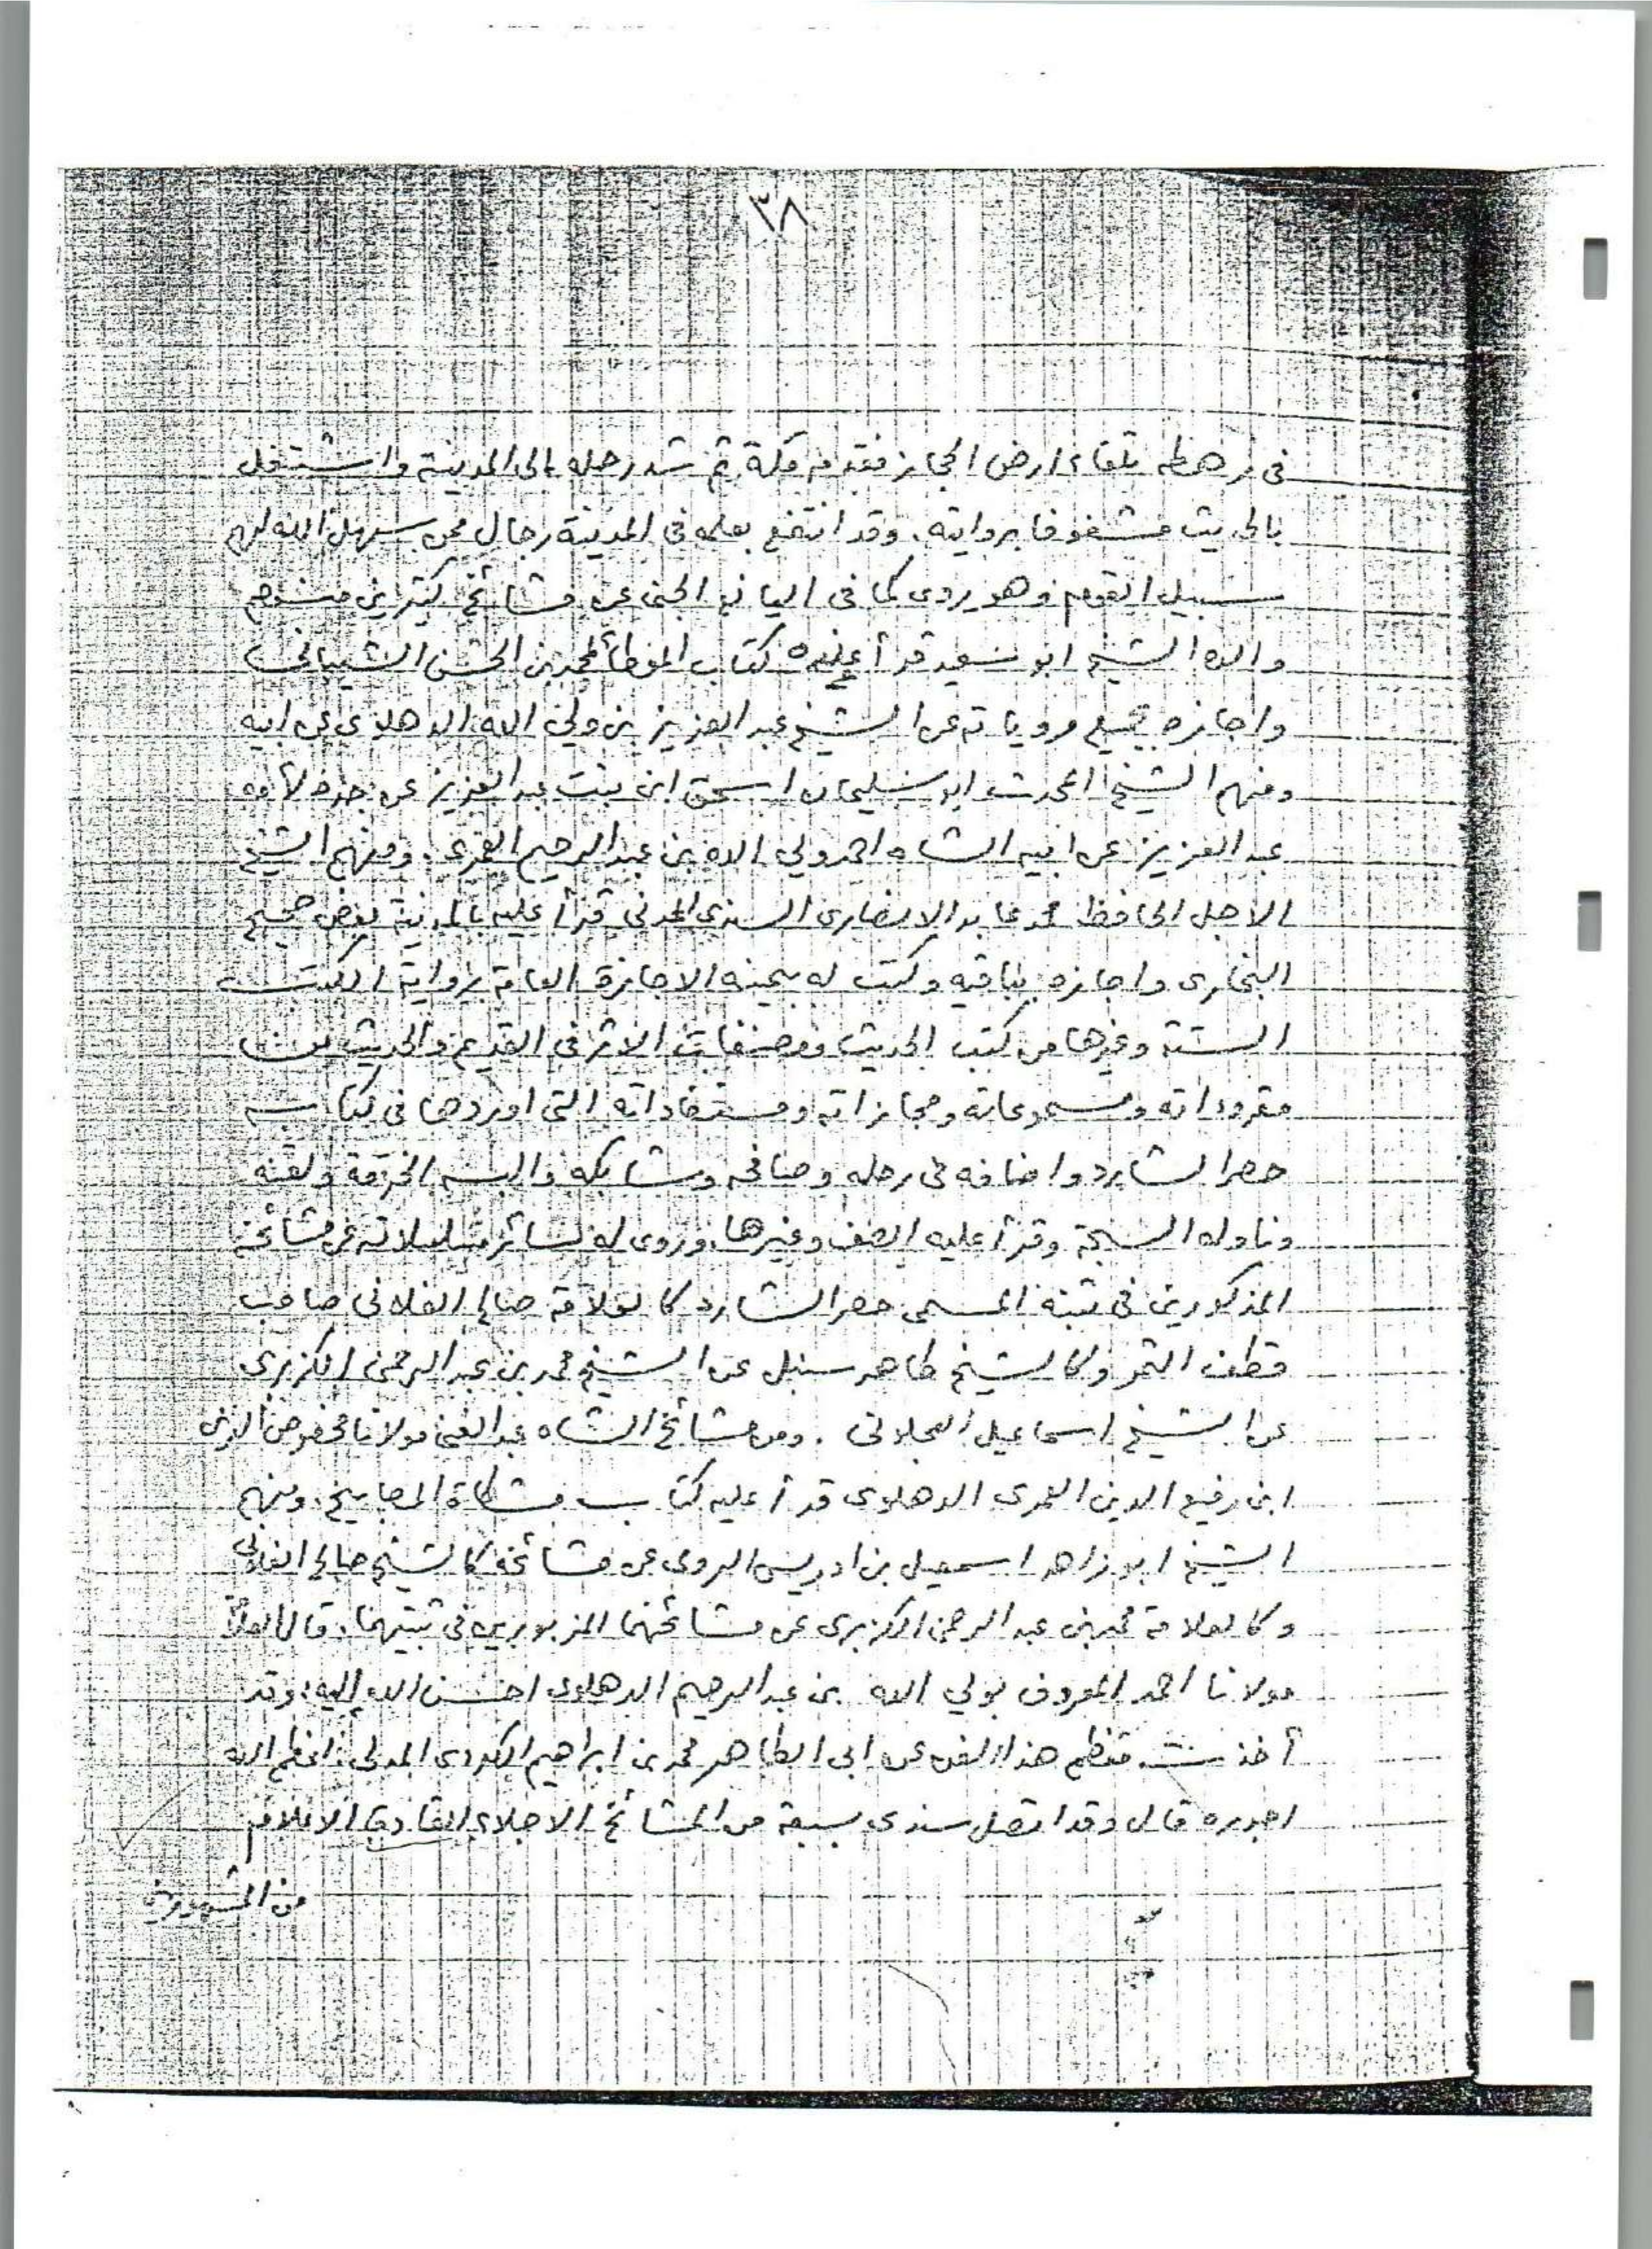 ٣٨
فى رهطه تلقاء ارض الحجاز فقدم مكة ثم شد رحله الى المدينة واشتغل
بالحديث مشغوفا بروايته. وقد انتفع بعلمه فى المدينة رجال ممن سهل الله لهم
سبيل القوم وهو يروى كما فى اليانع الجنى عن مشائخ كثيرين منهم
والده الشيخ ابو سعيد قرأ عليه كتاب الموطأ لمحمد بن الحسن الشيبانى
واجازه بجميع مروياته عن الشيخ عبد العزيز بن ولي الله الدهلوى عن ابيه
ومنهم الشيخ المحدث ابو سليمان اسحق ابن بنت عبد العزيز عن جده لأمه
عبد العزيز عن ابيه الشاه احمد ولي الله بن عبد الرحيم العمرى. ومنهم الشيخ
الاجل الحافظ محمد عابد الانصارى السندى المدنى قرأ عليه بالمدينة بعض صحيح
البخارى واجازه بباقيه وكتب له بيمينه الاجازة العامة برواية الكتب
الستة وغيرها من كتب الحديث ومصنفات الاثر فى القديم والحديث من
مقروءاته ومسموعاته ومجازاته ومستفاداته التى اوردها فى كتابه
حصر الشارد واضافه فى رحله وصافحه وشابكه والبسه الخرقة ولقنه
وناوله السبحة وقرأ عليه الصف وغيرها. وروى له سائر مسلسلاته عن مشائخه
المذكورين فى ثبته المسمى حصر الشارد كالعلامة صالح الفلانى صاحب
قطف الثمر وكالشيخ طاهر سنبل عن الشيخ محمد بن عبد الرحمن الكزبرى
عن الشيخ اسماعيل العجلانى. ومن مشائخ الشاه عبد الغنى مولانا مخصوص الدين
ابن رفيع الدين العمرى الدهلوى قرأ عليه كتاب مشكاة المصابيح. ومنهم
الشيخ ابو زاهد اسمعيل بن ادريس الرومى عن مشائخه كالشيخ صالح الفلانى
وكالعلامة محمد بن عبد الرحمن الكزبرى عن مشائخهما المزبورين فى ثبتيهما. قال العلامة
مولانا احمد المعروف بولي الله بن عبد الرحيم الدهلوى احسن الله إليه: وقد
أخذت معظم هذا الفن عن ابى الطاهر محمد بن ابراهيم الكردى المدنى اعظم الله
اجوره قال وقد اتصل سندى بسبعة من المشائخ الاجلاء القادة الاعلام
من المشهورين